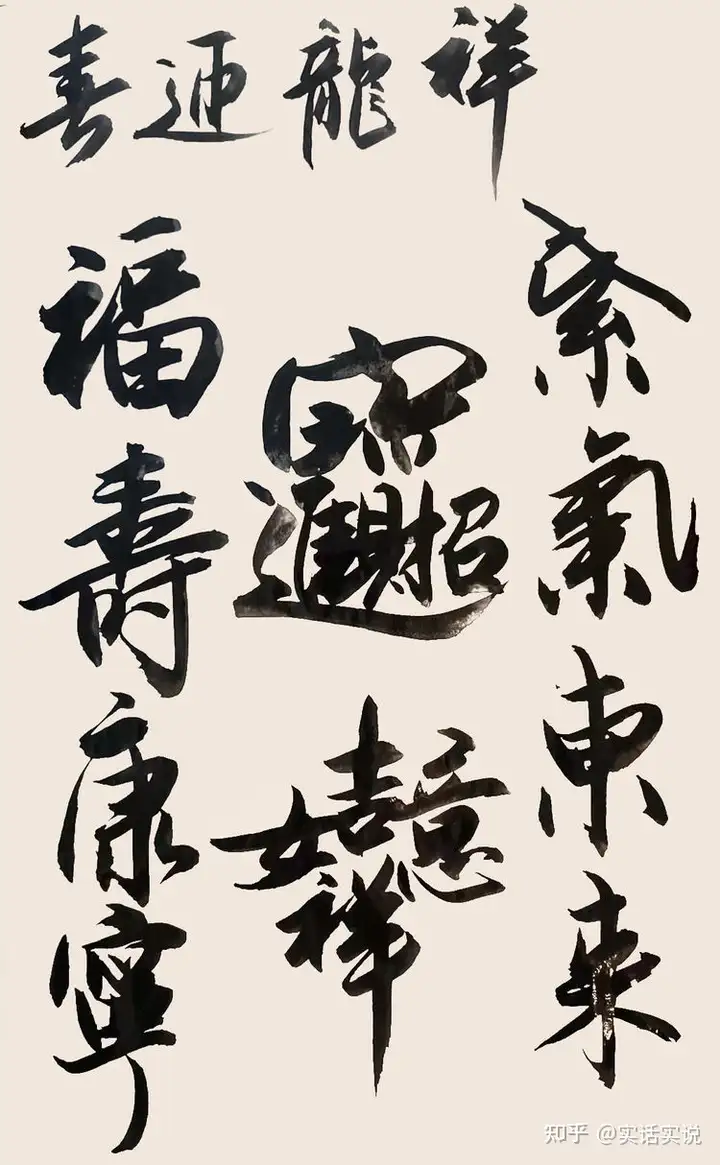 祥龍迎春
紫氣東来
招財進寶
吉祥如意
福壽康寧
知乎 @实话实说